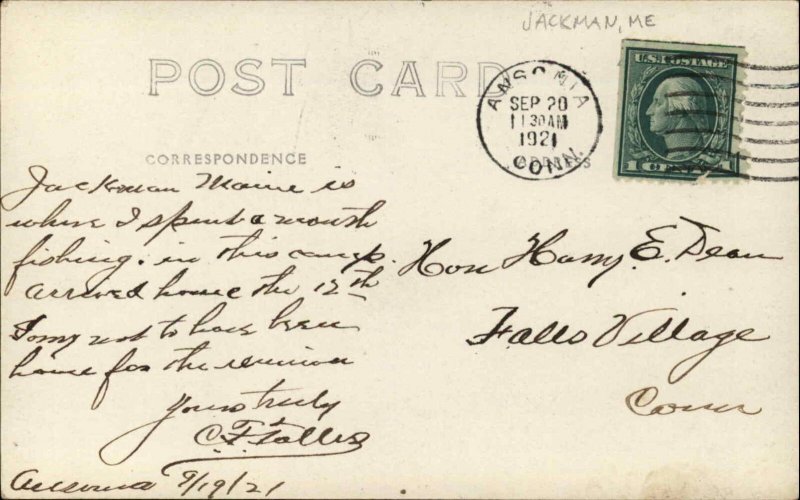 JACKMAN, ME
POST CARD
U.S. POSTAGE
1 CENT 1
ANSONIA
SEP 20
11 30 AM
1921
CONN.
CORRESPONDENCE
ADDRESS
Jackman Maine is
where I spent a month
fishing. in this camp.
arrived home the 12th
Sorry not to have been
home for the reunion
Yours truly
C F
Ansonia 9/19/21
Hon Harry E. Dean
Falls Village
Conn